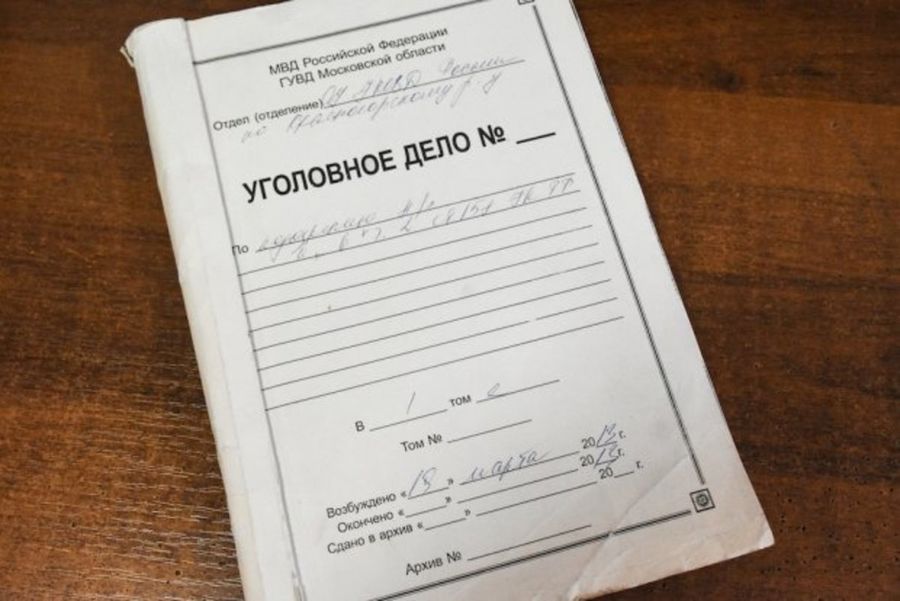 МВД Российской Федерации
ГУВД Московской области
Отдел (отделение) ОУ УМВД России
по Красногорскому р-у
УГОЛОВНОЕ ДЕЛО № ___
По
ч. 2 УК РФ
В 1 томе
Том №
Возбуждено «13» марта 2013 г.
Окончено « » 2013 г.
Сдано в архив « » 20 г.
Архив №